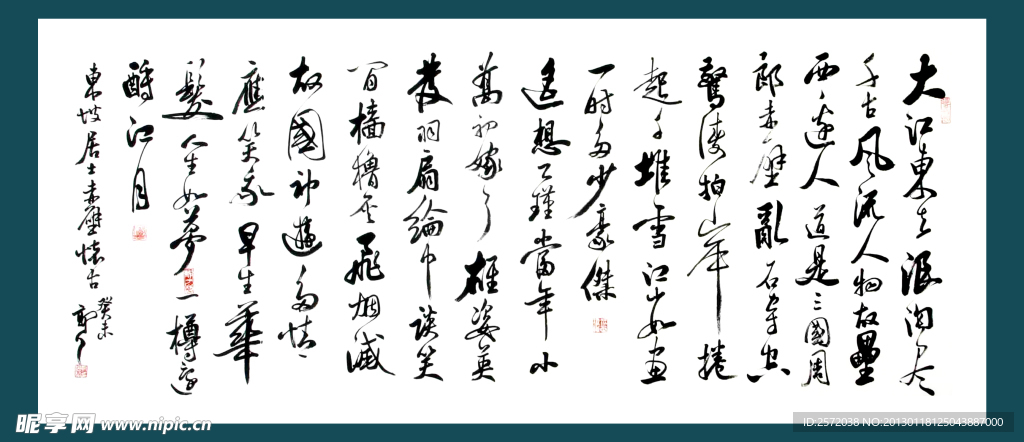 大江東去浪淘盡
千古風流人物故壘
西邊人道是三國周
郎赤壁亂石穿空
驚濤拍岸捲
起千堆雪江山如畫
一時多少豪傑
遙想公瑾當年小
喬初嫁了雄姿英
發羽扇綸巾談笑
間檣櫓灰飛烟滅
故國神遊多情
應笑我早生華
髮人生如夢一樽還
酹江月
東坡居士赤壁懷古
癸未
昵享网 www.nipic.cn
ID:2572038 NO:20130118125043887000